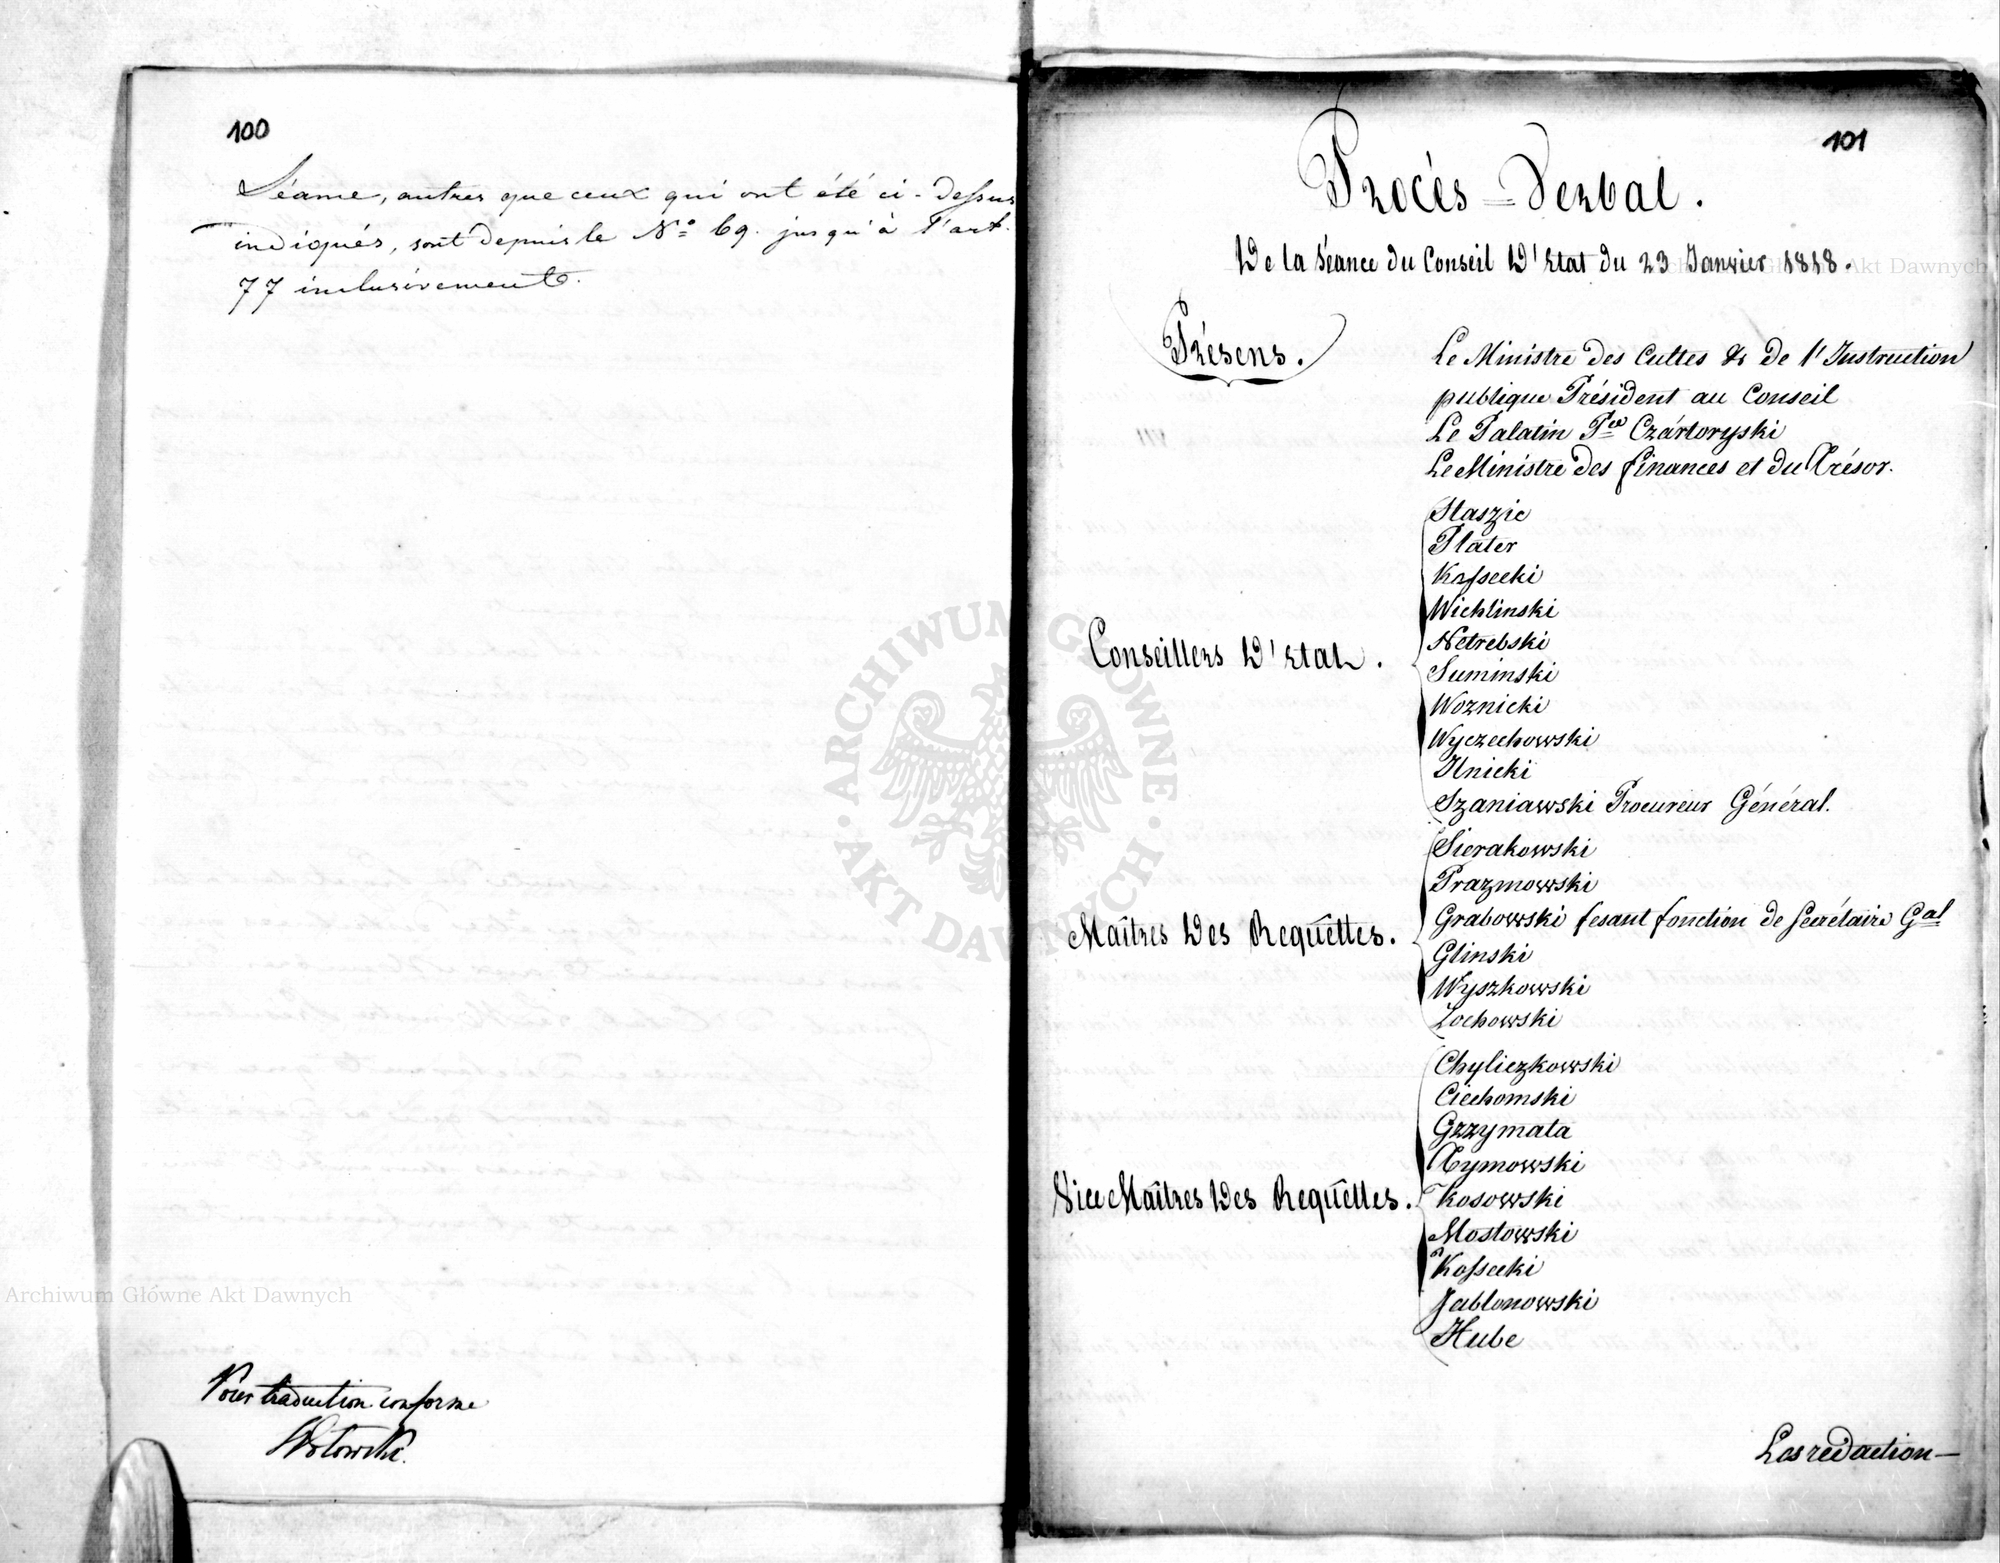 100
Séance, autres que ceux qui ont été ci-dessus
indiqués, sont depuis le No. 69. jusqu'à l'art.
77 inclusivement.
Pour traduction conforme
Wołowski.
101
Procès-Verbal.
De la Séance du Conseil D'Etat du 23 Janvier 1818.
Présens.
Le Ministre des Cultes & de l'Instruction
publique Président au Conseil
Le Palatin Pce Czártoryski
Le Ministre des finances et du Trésor.
Conseillers D'Etat.
Staszic
Plater
Kossecki
Wichlinski
Netrebski
Suminski
Woznicki
Wyczechowski
Ilnicki
Szaniawski Procureur Général.
Maîtres Des Requêttes.
Sierakowski
Prazmowski
Grabowski fesant fonction de Secrétaire Gal
Glinski
Wyszkowski
Lochowski
Vice Maîtres Des Requêttes.
Chyliczkowski
Ciechomski
Grzymata
Tymowski
Kosowski
Mostowski
Kossecki
Jablonowski
Hube
La rédaction
Archiwum Główne Akt Dawnych
ARCHIWUM GŁÓWNE AKT DAWNYCH
Archiwum Główne Akt Dawnych